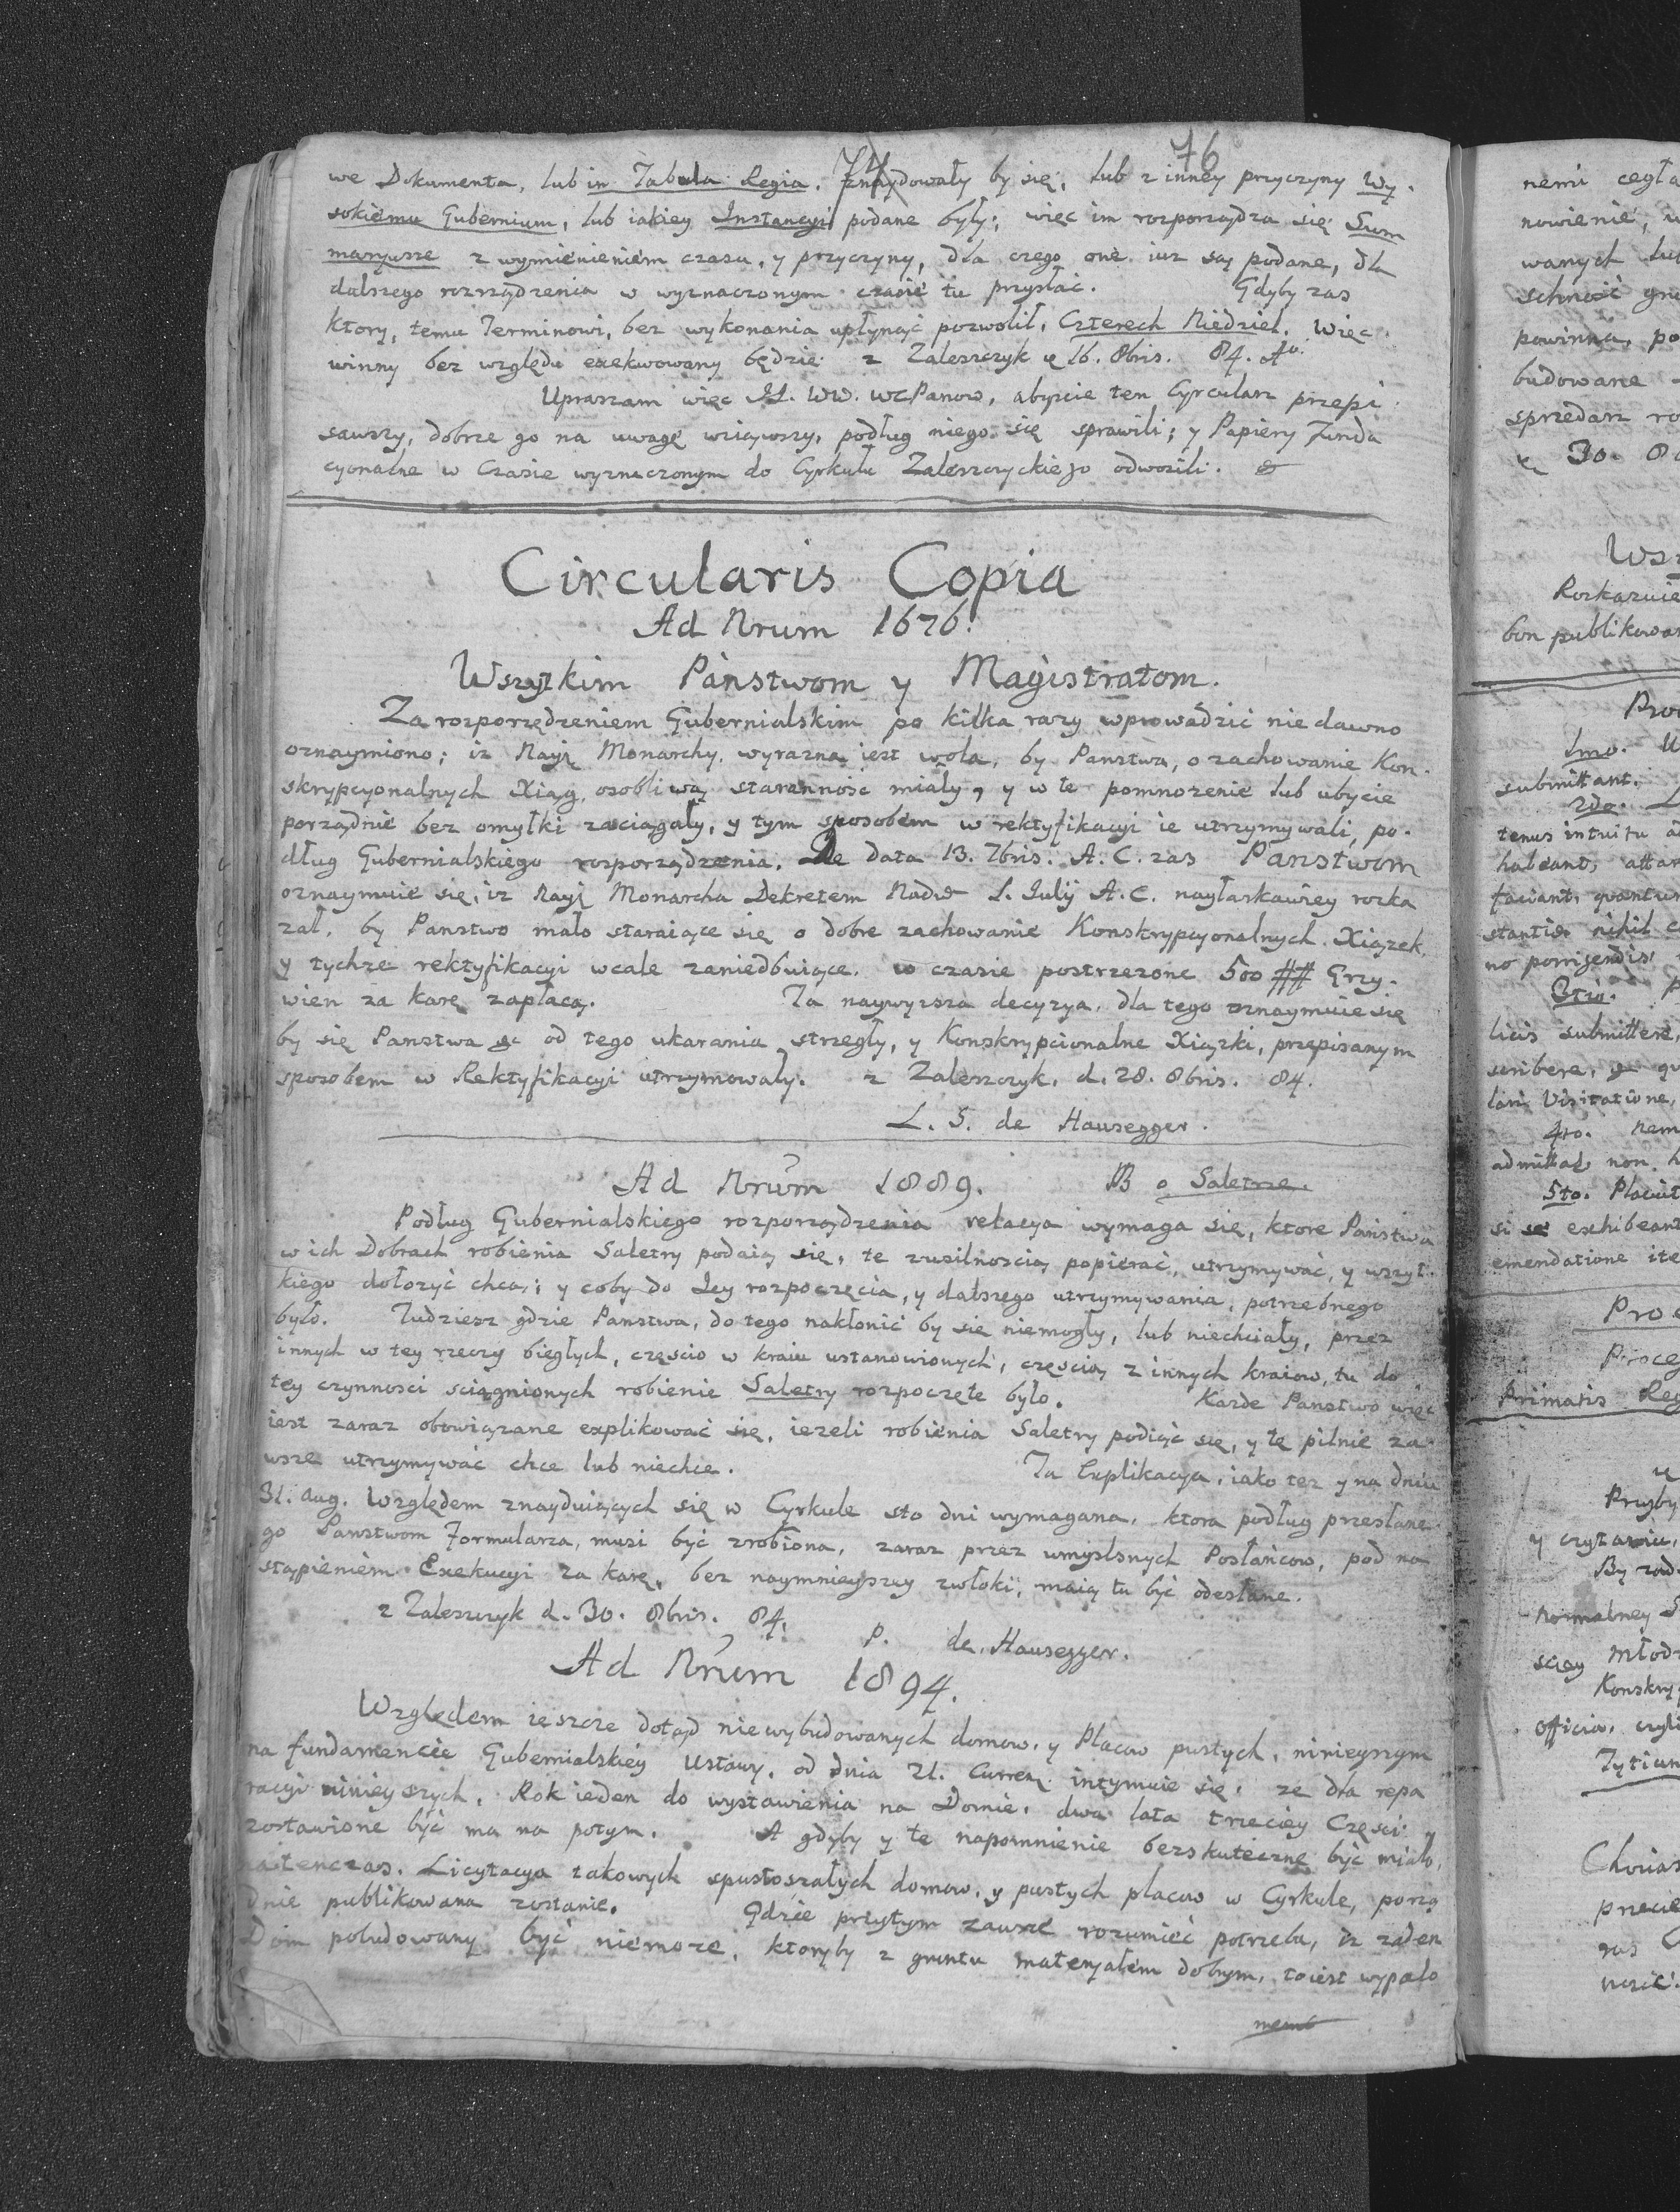 76
we Dokumenta, lub in Tabula Regia. znaydowały by się, lub z inney przyczyny Wy.
sokiemu Gubernium, lub iakiey Instancyi podane były; więc im rozporządza się Sum
maryusze z wymienieniem czasu, y przyczyny, dla czego one iuz są podane, dla
dalszego rozrządzenia w wyznaczonym czasie tu przysłać. Gdyby zas
ktory, temu Terminowi, bez wykonania upłynąć pozwolił, Czterech Niedziel. Więc
winny bez względu exekwowany będzie z Zaleszczyk 16. 8bris. 84.
Upraszam więc JJ. WW. WPanow, abyscie ten Cyrcularz przepi
sawszy, dobrze go na uwagę wziąwszy, podług niego się sprawili; y Papiery Funda
cyonalne w Czasie wyznaczonym do Cyrkułu Zaleszczyckiego odwozili.
Circularis Copia
Ad Nrum 1676.
Wszytkim Państwom y Magistratom.
Za rozporzędzeniem Gubernialskim po kilka razy wprowadzić nie dawno
oznaymiono; iz Nayj Monarchy. wyrazna iest wola, by Panstwa, o zachowanie Kon.
skrypcyonalnych Xiąg, osobliwą staranność miały, y w te pomnozenie lub ubycie
porządnie bez omyłki zaciągały, y tym sposobem w rektyfikacyi ie utrzymywali, po.
dług Gubernialskiego rozporządzenia. De data 13. 7bris. A. C. zas Panstwom
oznaymuie się, iz Nayj Monarcha Dekretem Nadw 1. Julij A. C. nayłaskawiey rozka
zał, by Panstwo mało staraiące się o dobre zachowanie Konskrypcyonalnych. Xiązek,
y tychze rektyfikacyi wcale zaniedbuiące. w czasie postrzezone 500 ## Grzy.
wien za karę zapłacą. Ta naywyzsza decyzya. dla tego oznaymuie się
by się Panstwa od tego ukarania strzegły, y Konskrypcionalne Xiązki, przepisanym
sposobem w Rektyfikacyi utrzymowały. z Zaleszczyk. d. 28. 8bris. 84.
L. S. de Hausegger.
Ad Nrum 1889. NB o Saletrze.
Podług Gubernialskiego rozporządzenia relacya wymaga się, ktore Państwa
w ich Dobrach robienia Saletry podaią się, te zusilnoscią popierać, utrzymywać, y wszyt.
kiego dołozyć chcą; y coby do Jey rozpoczęcia, y dalszego utrzymywania, potrzebnego
było. Tudziesz gdzie Panstwa, do tego nakłonić by się niemogły, lub niechciały, przez
innych w tey rzeczy biegłych, częscio w kraiu ustanowionych, częscią z innych kraiow, tu do
tey czynnosci sciągnionych robienie Saletry rozpoczęte było. Kazde Panstwo więc
iest zaraz obowiązane explikować się, iezeli robienia Saletry podiąć się, y tę pilnie za
wsze utrzymywać chce lub niechce. Ta Explikacya, iako tez y na dniu
31. Aug. Względem znayduiących się w Cyrkule sto dni wymagana. ktora podług przesłane
go Panstwom Formularza, musi być zrobiona, zaraz przez umyslsnych Posłańcow, pod na
stąpieniem Exekucyi za karę, bez naymnieyszey zwłoki, maią tu być odesłane.
z Zaleszczyk d. 30. 8bris. 84.
p. de. Hausegger.
Ad Nrum 1894.
Względem ieszcze dotąd niewybudowanych domow, y Placow pustych, ninieyszym
na fundamencie Gubernialskiey Ustawy. od dnia 21. Curren intymuie się. ze dla repa
racyi ninieyszych. Rok ieden do wystawienia na Domie. dwa lata trzeciey Częsci
zostawione być ma na potym. A gdyby y te napomnienie bezskuteczne być miało,
natenczas. Licytacya takowych spustoszałych domow, y pustych placow w Cyrkule, porzą
dnie publikowana zostanie. Gdzie przytym zawsze rozumieć potrzeba, iz zaden
Dom pobudowany być niemoze, ktoryby z gruntu materyałem dobrym, toiest wypalo
nemi cegła
nowienie,
wanych
powinna, po
budowane
sprzedarz
30.
Rozkazuie
bon publikowan
submittant.
2do.
tenus intuitu
habeant,
faciant,
nihil
no porrigendis
3tio.
licis submittere,
scribere,
Visitatione,
4to. nem
admittat non
5to.
si se exhibeant
emendatione ite
Proce
Primatis Reg
Przyby
y czytaniu,
Normalney
Młod
Officia,